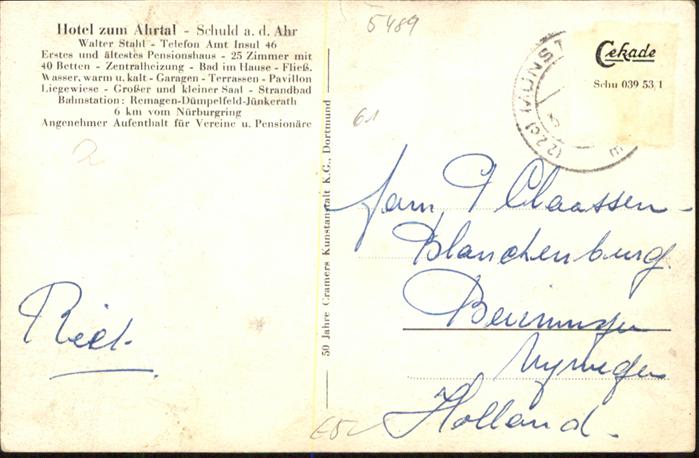 Hotel zum Ahrtal - Schuld a. d. Ahr
Walter Stahl - Telefon Amt Insul 46
Erstes und ältestes Pensionshaus - 25 Zimmer mit
40 Betten - Zentralheizung - Bad im Hause - Fließ.
Wasser, warm u. kalt - Garagen - Terrassen - Pavillon
Liegewiese - Großer und kleiner Saal - Strandbad
Bahnstation: Remagen-Dümpelfeld-Jünkerath
6 km vom Nürburgring
Angenehmer Aufenthalt für Vereine u. Pensionäre
5489
61
Cekade
Schu 039 53/1
(22c) MÜNST
50 Jahre Cramers Kunstanstalt K.G., Dortmund
Fam Claassen-
Blanchenburg.
Holland.